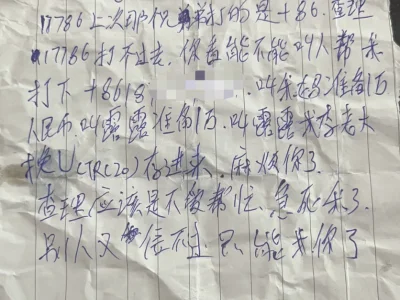 17786上次那个 的是+86.查理
17786打不过去,你看能不能叫人帮来
打下+8618 叫来 准备1万
人民币叫露露准备1万.叫露露来存老大
换U(TRC20)存进来.麻烦你了
查理应该是不够帮忙.急死我了
别人又 信不过 只能求你了